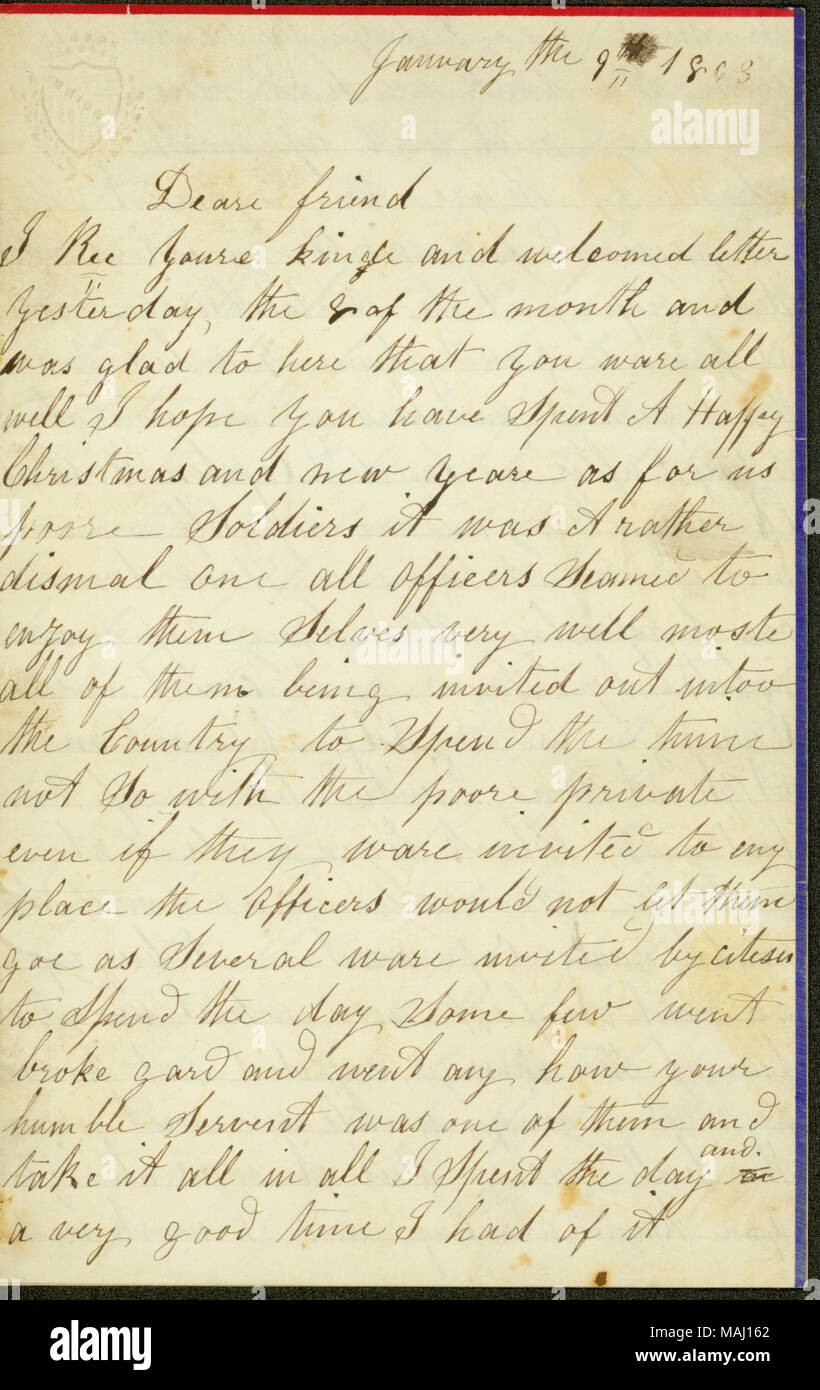 January the 9th 1863
Deare friend
I Rec Youre kinde and welcomed letter
Yesterday, the 8 of the month and
was glad to here that you ware all
well I hope You have Spent A Happy
Christmas and new yeare as for us
poore Soldiers it was A rather
dismal one all officers Seamed to
enjoy them Selves very well moste
all of them being invited out intoo
the Country to Spend the time
not So with the poore private
even if they ware invited to eny
place the Officers would not let them
goe as Several ware invited by citesen
to Spend the day Some few went
broke gard and went any how your
humble Servent was one of them and
take it all in all I Spent the day and.
a very good time I had of it
alamy
Image ID: MAJ162
www.alamy.com